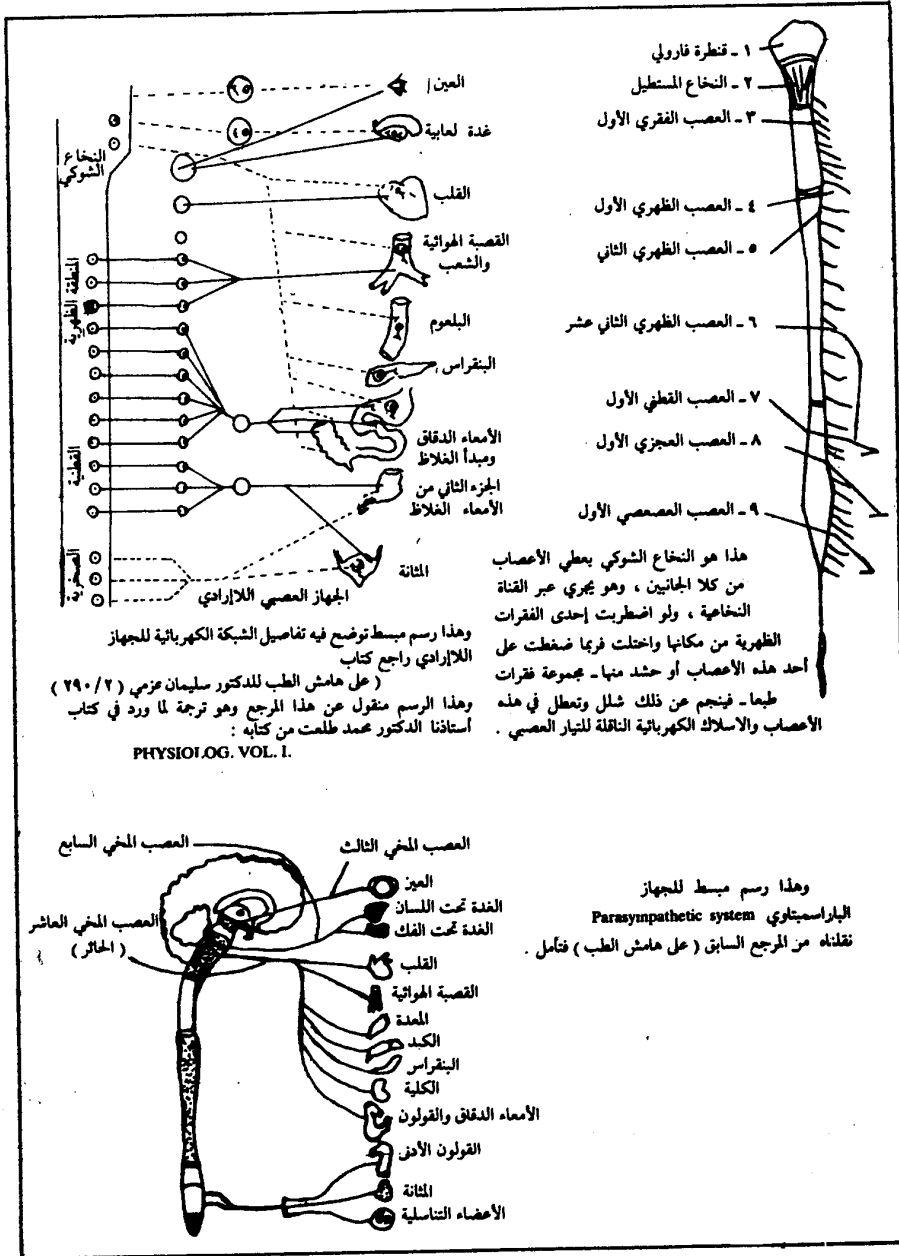 ١ - قنطرة فارولي
٢ - النخاع المستطيل
٣ - العصب الفقري الأول
٤ - العصب الظهري الأول
٥ - العصب الظهري الثاني
٦ - العصب الظهري الثاني عشر
٧ - العصب القطني الأول
٨ - العصب العجزي الأول
٩ - العصب العصعصي الأول
هذا هو النخاع الشوكي يعطي الأعصاب
من كلا الجانبين ، وهو يجري عبر القناة
النخاعية ، ولو اضطربت إحدى الفقرات
الظهرية من مكانها واختلت فربما ضغطت على
أحد هذه الأعصاب أو حشد منها - مجموعة فقرات
طبعا - فينجم عن ذلك شلل وتعطل في هذه
الأعصاب والاسلاك الكهربائية الناقلة للتيار العصبي .
العين
غدة لعابية
القلب
القصبة الهوائية
والشعب
البلعوم
البنقراس
الأمعاء الدقاق
ومبدأ الغلاظ
الجزء الثاني من
الأمعاء الغلاظ
المثانة
النخاع
الشوكي
المنطقة الظهرية
القطنية
الصخرية
الجهاز العصبي اللاإرادي
وهذا رسم مبسط توضع فيه تفاصيل الشبكة الكهربائية للجهاز
اللاإرادي راجع كتاب
( على هامش الطب للدكتور سليمان عزمي ( ٢ / ٢٩٠ )
وهذا الرسم منقول عن هذا المرجع وهو ترجمة لما ورد في كتاب
أستاذنا الدكتور محمد طلعت من كتابه :
PHYSIOLOG. VOL. I.
العصب المخي الثالث
العصب المخي السابع
العصب المخي العاشر
( الحائر )
العين
الغدة تحت اللسان
الغدة تحت الفك
القلب
القصبة الهوائية
المعدة
الكبد
البنقراس
الكلية
الأمعاء الدقاق والقولون
القولون الأدنى
المثانة
الأعضاء التناسلية
وهذا رسم مبسط للجهاز
الباراسمبتاوي Parasympathetic system
نقلناه من المرجع السابق ( على هامش الطب ) فتأمل .